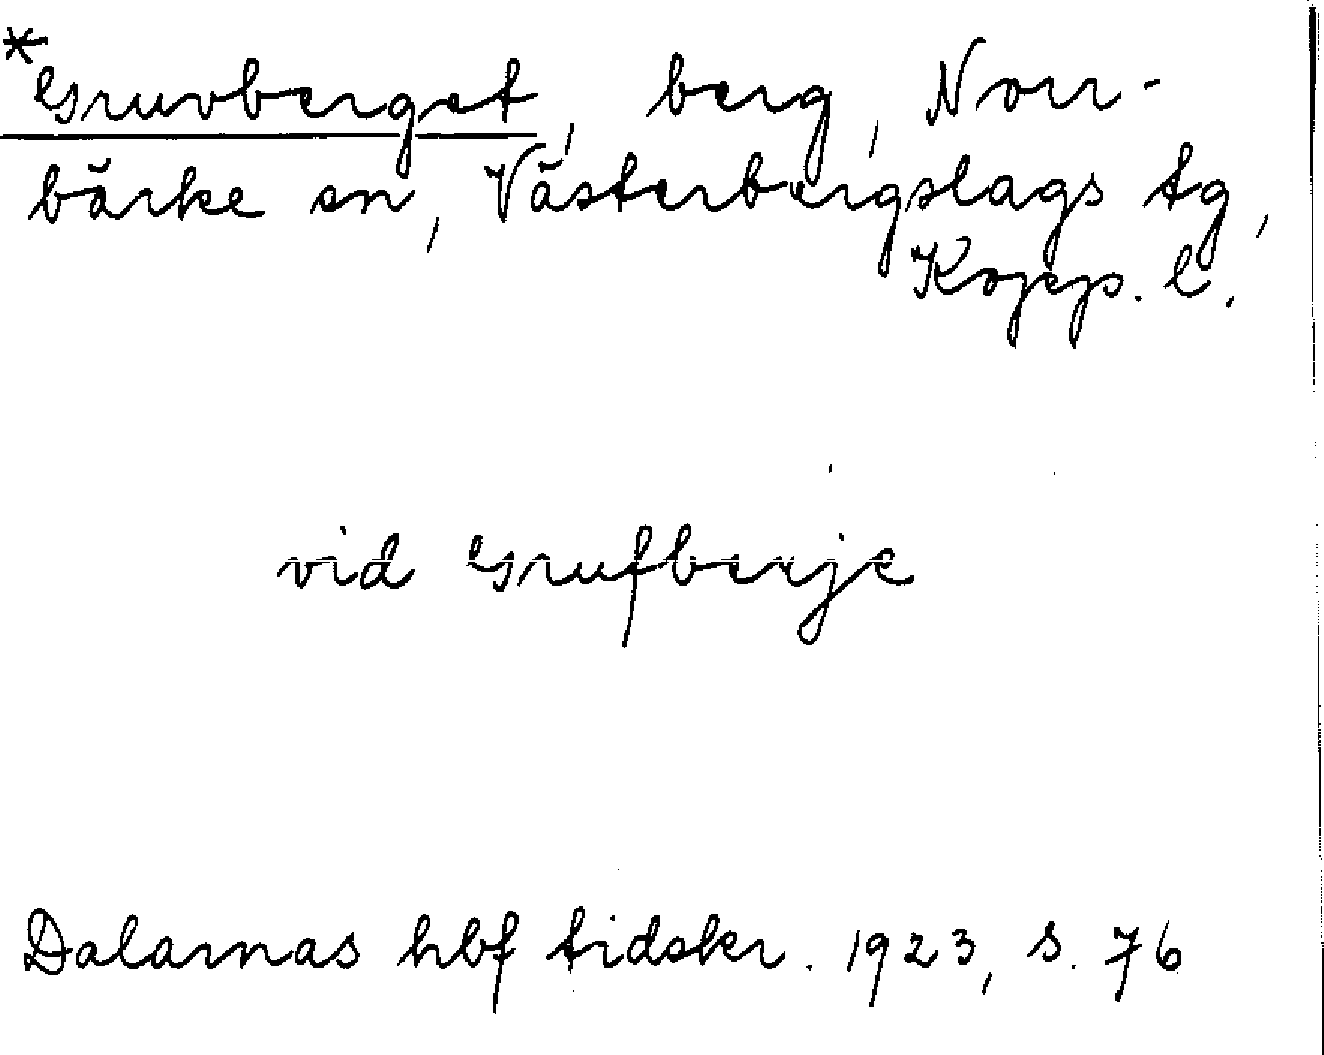 *Gruvberget, berg, Norr-
bärke sn, Västerbergslags tg,
Kopp. l.
vid Grufberje
Dalarnas hbf tidskr. 1923, s. 76